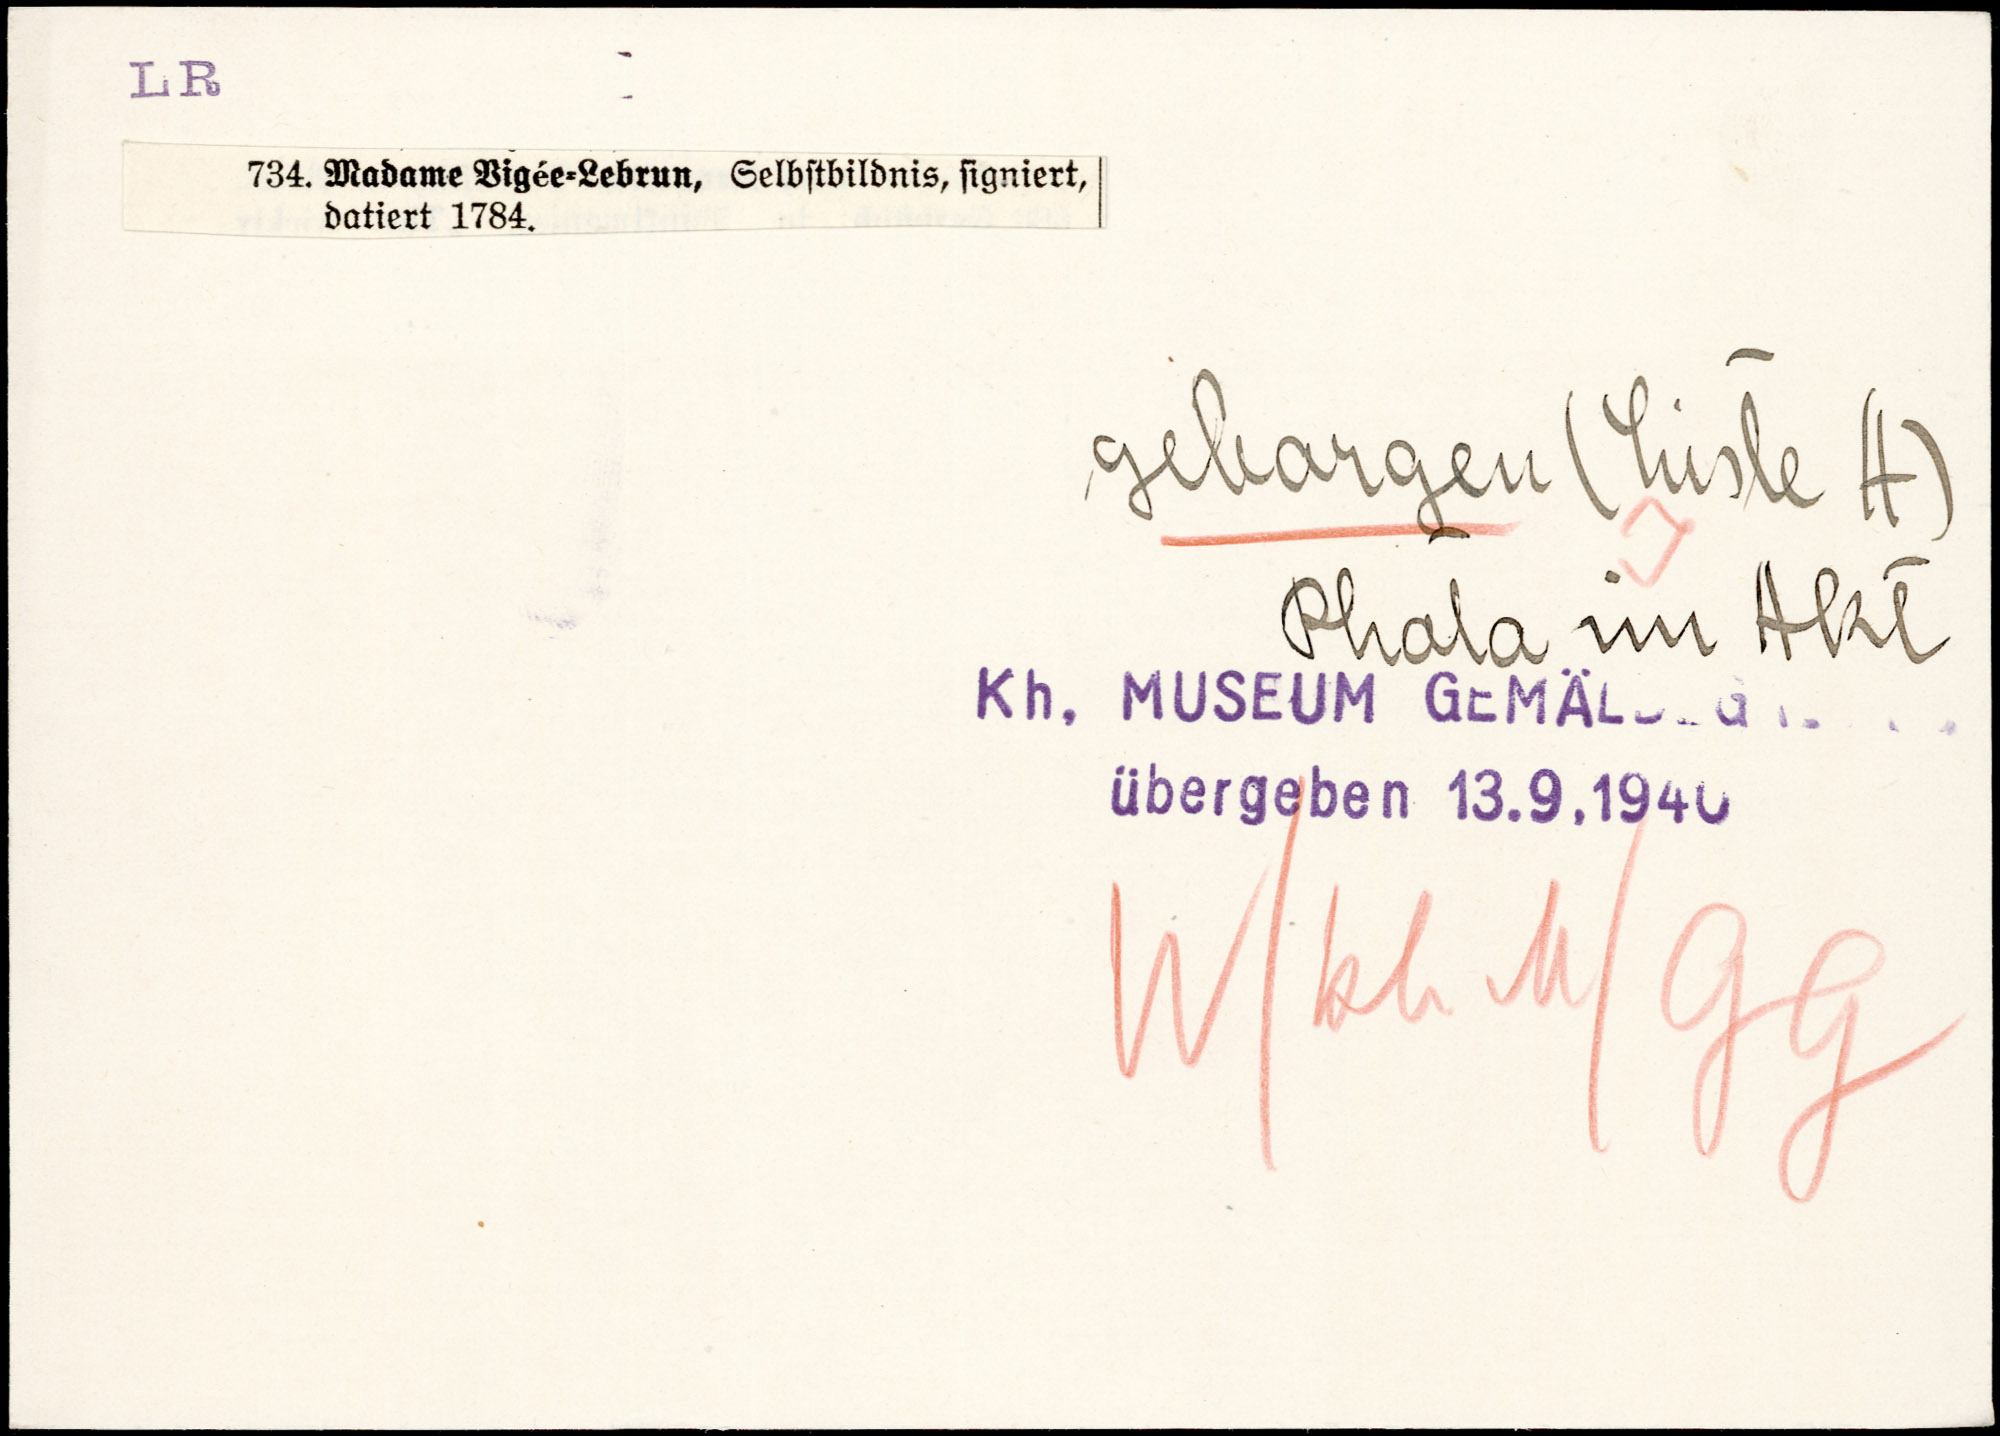 LR
734. Madame Vigée-Lebrun, Selbstbildnis, signiert,
datiert 1784.
geborgen (Liste A)
J
Photo im Akt
Kh. MUSEUM
übergeben 13.9.1940
W/kh M/GG